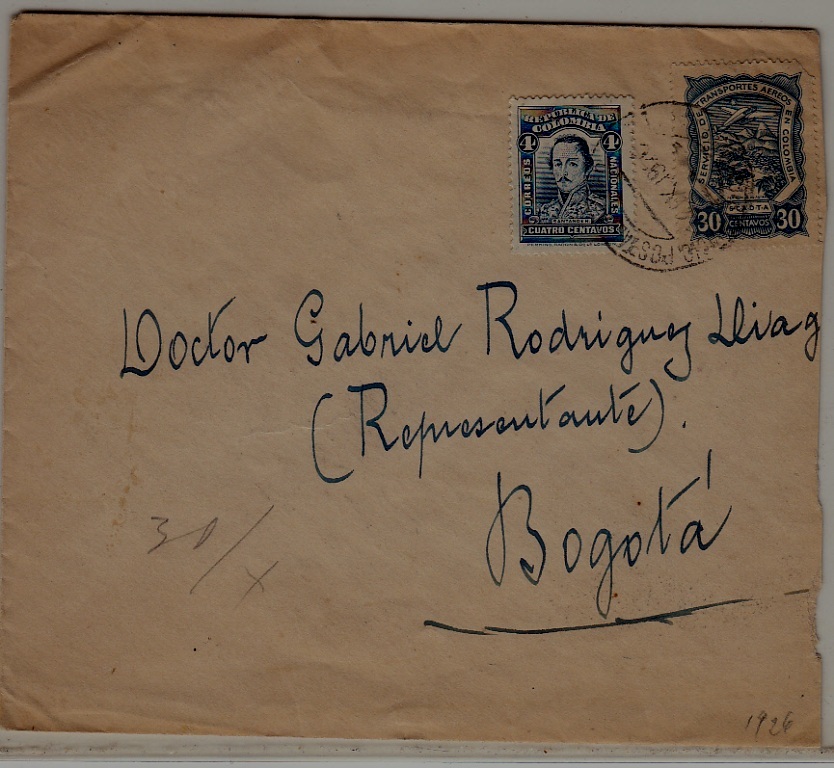 REPUBLICA DE
COLOMBIA
4 4
CORREOS
NACIONALES
SANTANDER
CUATRO CENTAVOS
SERVICIO DE TRANSPORTES AEREOS EN COLOMBIA
SCADTA
30 30
CENTAVOS
Doctor Gabriel Rodriguez Diag
(Representante).
Bogotá
30/X
1926